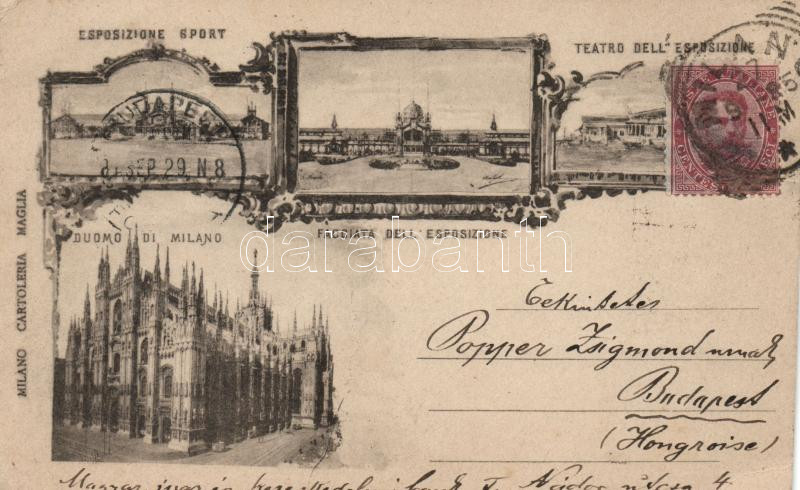 ESPOSIZIONE SPORT
TEATRO DELL'ESPOSIZIONE
BUDAPEST
SEP. 29. N 8
DUOMO DI MILANO
FACCIATA DELL'ESPOSIZIONE
MILANO CARTOLERIA MAGLIA
darabanth
Tekintetes
Popper Zsigmond urnak
Budapest
(Hongroise)
Magyar ipar és kereskedelmi bank V. Nádor utcza 4